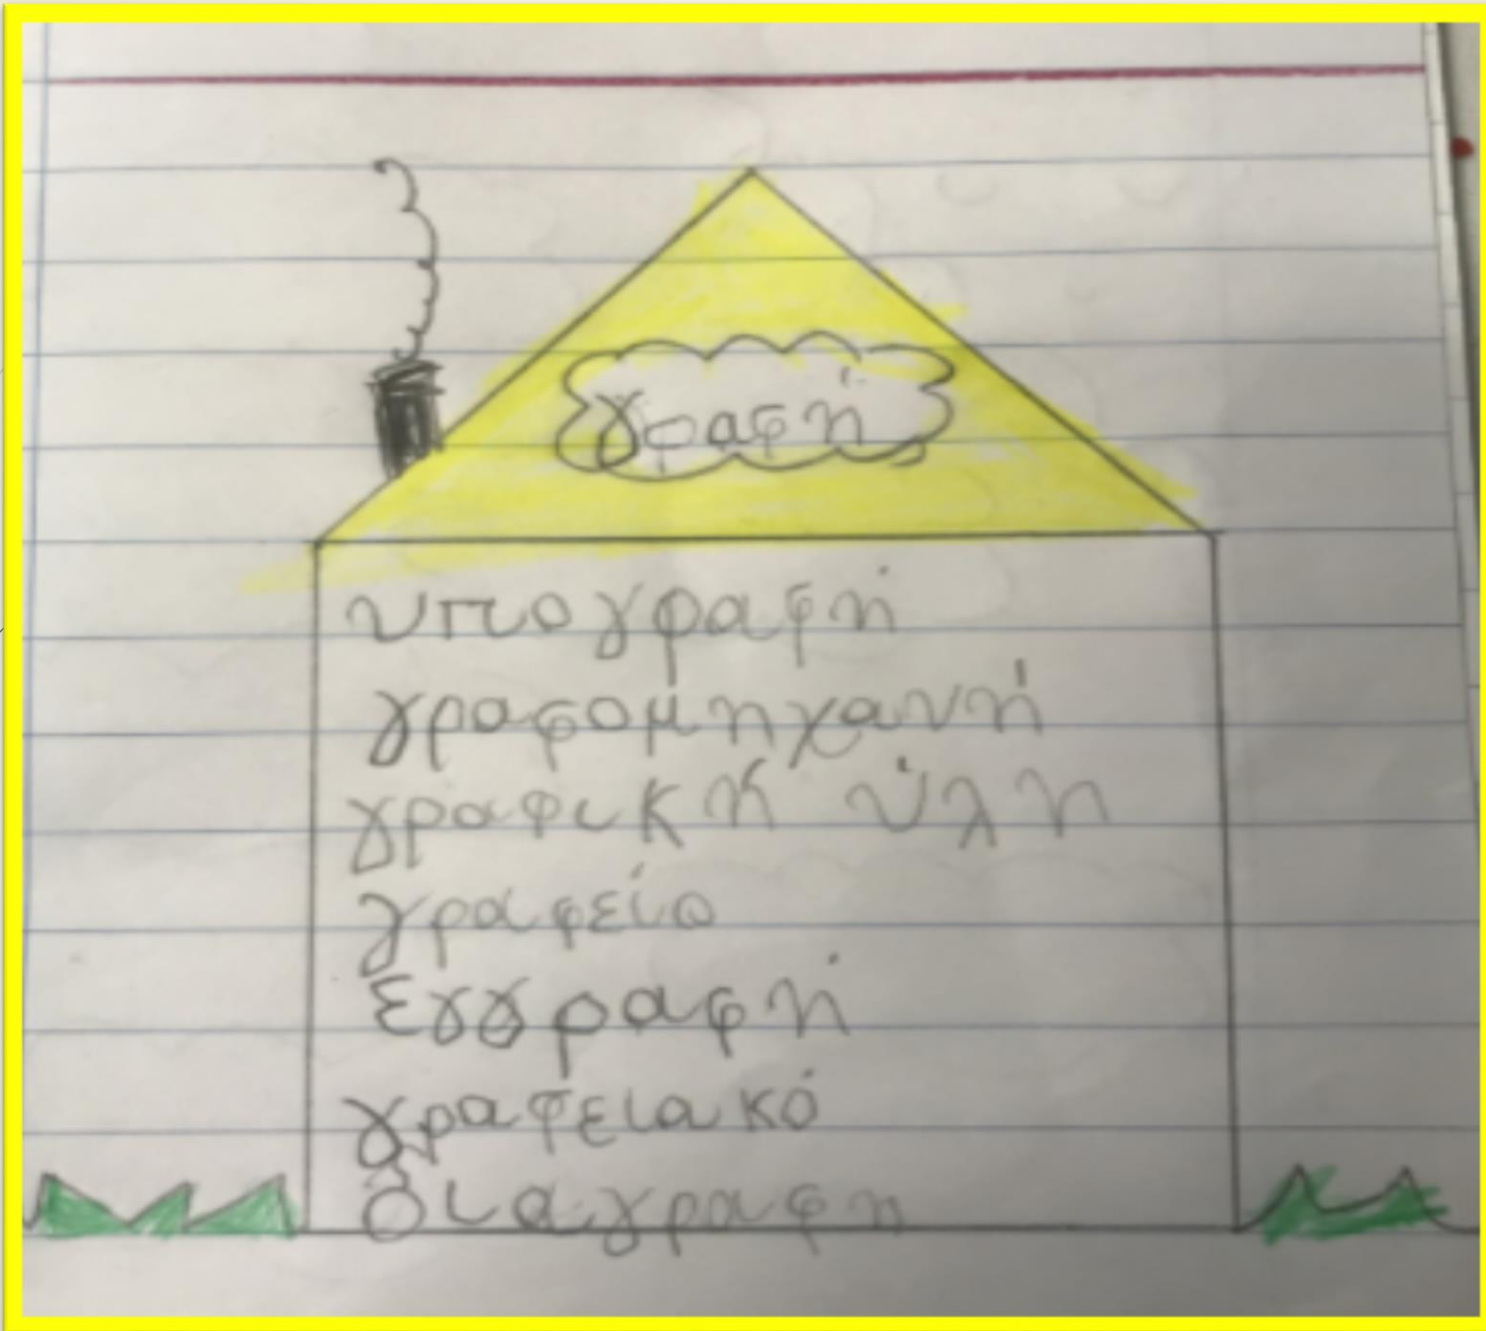 γραφή
υπογραφή
γραφομηχανή
γραφική ύλη
γραφείο
εγγραφή
γραφειακό
διαγραφη